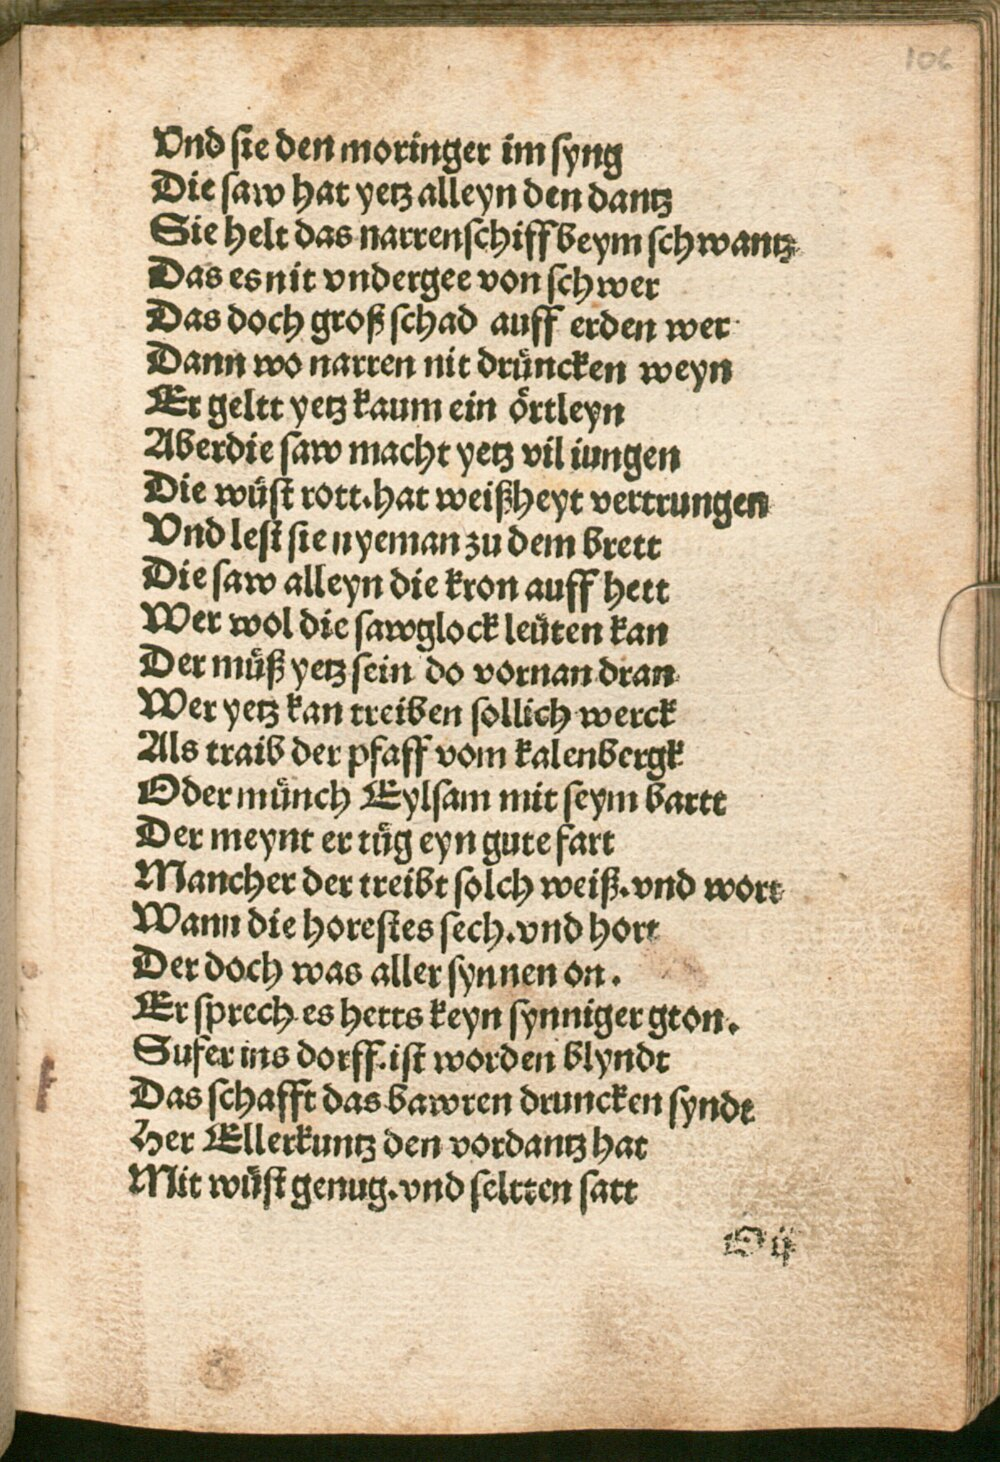 106
Vnd sie den moringer im syng
Die saw hat yetz alleyn den dantz
Sie helt das narrenschiff beym schwantz
Das es nit vndergee von schwer
Das doch groß schad auff erden wer
Dann wo narren nit drüncken weyn
Er geltt yetz kaum ein örtleyn
Aber die saw macht yetz vil iungen
Die wüst rott. hat weißheyt vertrungen
Vnd lest sie nyeman zu dem brett
Die saw alleyn die kron auff hett
Wer wol die sawglock leüten kan
Der müß yetz sein do vornan dran
Wer yetz kan treiben sollich werck
Als traib der pfaff vom kalenbergk
Oder münch Eylsam mit seym bartt
Der meynt er tüg eyn gute fart
Mancher der treibt solch weiß. vnd wort
Wann die horestes sech. vnd hort
Der doch was aller synnen on.
Er sprech es hetts keyn synniger gton.
Sufer ins dorff. ist worden blyndt
Das schafft das bawren druncken syndt
Her Ellerkuntz den vordantz hat
Mit wüst genug. vnd seltten satt